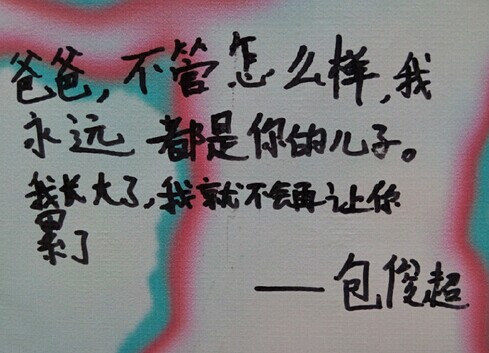 爸爸,不管怎么样,我
永远都是你的儿子。
我长大了,我就不会再让你
累了
——包俊超